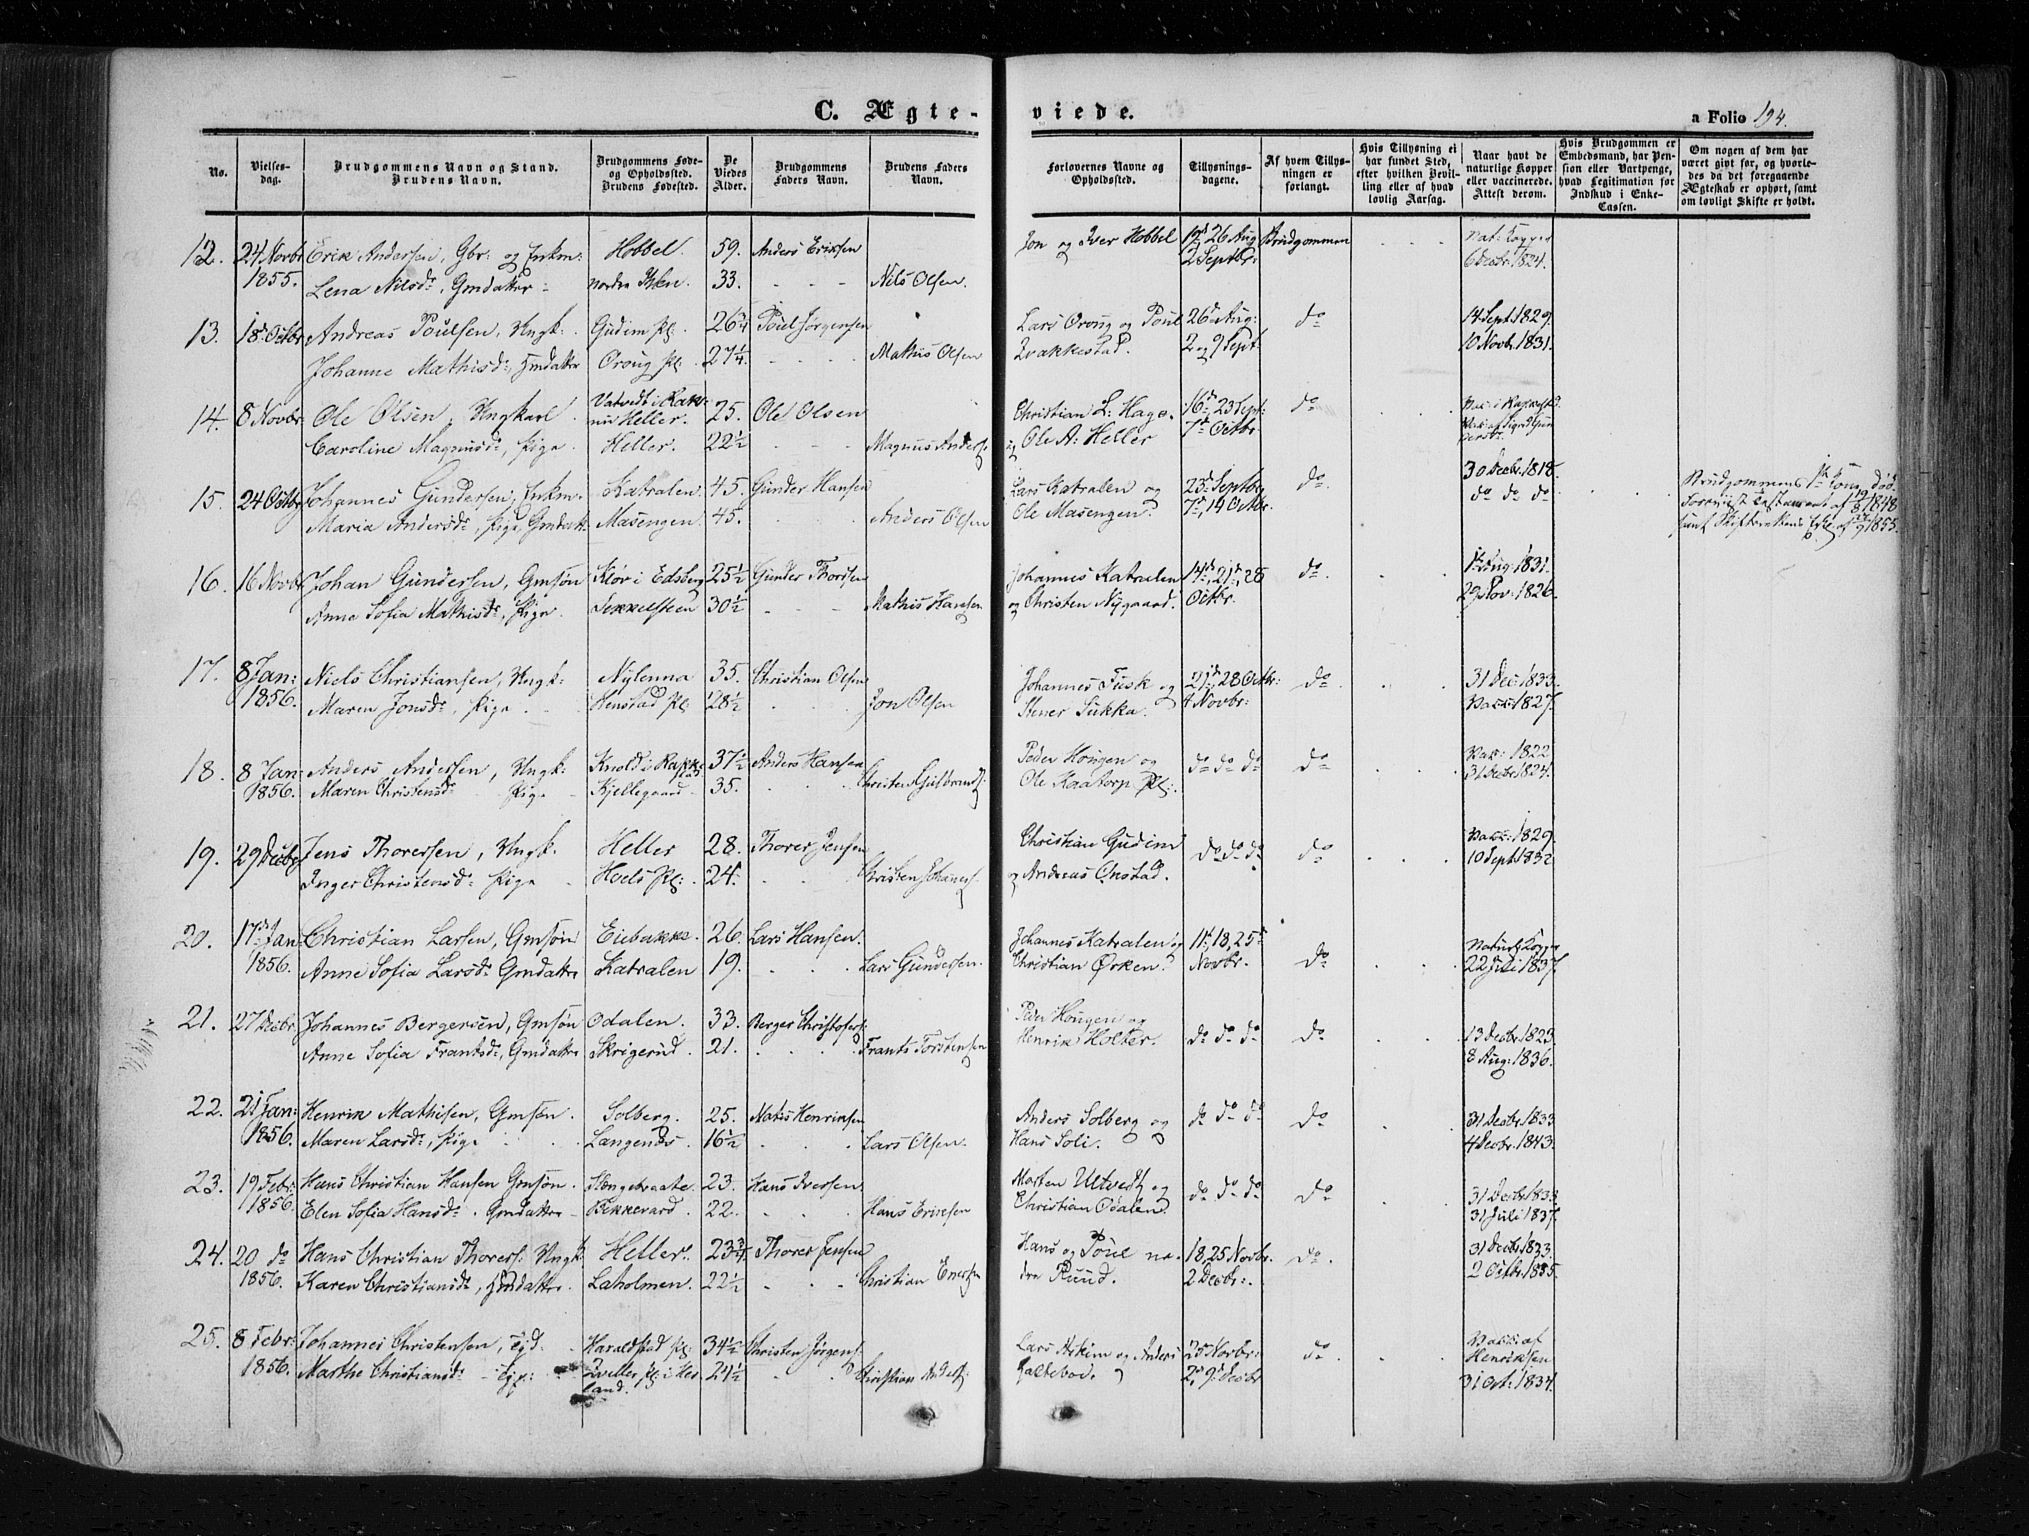 C. Ægte-
viede.
a Folio 194.
No.
Vielses-
dag.
Brudgommens Navn og Stand.
Brudens Navn.
Brudgommens Føde-
og Opholdssted.
Brudens Fødested.
De
Viedes
Alder.
Brudgommens
Faders Navn.
Brudens Faders
Navn.
Forlovernes Navne og
Opholdssted.
Tillysnings-
dagene.
Af hvem Tillys-
ningen er
forlangt.
Hvis Tillysning ei
har fundet Sted,
efter hvilken Bevil-
ling eller af hvad
lovlig Aarsag.
Naar havt de
naturlige Kopper
eller vaccinerede.
Attest derom.
Hvis Brudgommen er
Embedsmand, har Pen-
sion eller Vartpenge,
hvad Legitimation for
Indskud i Enke-
Cassen.
Om nogen af dem har
været givt før, og hvorle-
des da det foregaaende
Ægteskab er ophørt, samt
om lovligt Skifte er holdt.
12. 24 Novbr Erik Andersen, Gbr: og Enkm: Hobbel. 59. Anders Eriksen Jon og Iver Hobbel 26 Aug Brudgommen Nat: Kopper
1855. Lena Nilsdr, Gmdatter nordre 33. Nils Olsen. 2 Septbr: 6 Decbr. 1824.
13. 18 Octbr Andreas Poulsen, Ungk: Gudim Pl. 26¾ Poul Jørgensen Lars Oroug og Poul 26 Aug: do 14 Sept 1829.
Johanne Mathisdr, Gmdatter Oroug Pl: 27¼. Mathis Olsen Tvakkestad. 2 og 9 Sept: 10 Novbr. 1831.
14. 8 Novbr Ole Olsen, Ungkarl. Vatvedt i Rak:
nu Heller. 25. Ole Olsen Christian L: Hage 16 23 Sept: do
Caroline Magnusdr, Pige. Heller. 22½ Magnus Anders: og Ole A: Heller 7 Octbr
15. 24 Octbr Johannes Gundersen, Enkm. Katralen 45. Gunder Hansen Lars Katralen og 23 Septbr do. 30 Decbr. 1818. Brudgommens 1st Kone død.
Maria Andersdr, Pige, Gmdatt: Masengen. 45. Anders Olsen Ole Masengen. 7, 14 Octbr. do do do
16. 16 Novbr Johan Gundersen, Gmsøn Kløv i Edsberg 25½ Gunder Thorsen Johannes Katralen 14, 21, 28 do. 1 Aug 1831.
Anne Sofia Mathisdr, Pige. 30½ Mathis Hansen og Christen Nygaard. Octbr. 29 Nov: 1826.
17. 8 Jan: Niels Christiansen, Ungk: Nylenna 35. Christian Olsen Johannes Fusk og 21, 28 Octbr: do 31 Dec: 1833.
1856. Maren Jonsdr, Pige Henstad Pl 28½ Jon Olsen Stener Sukka. 4 Novbr: Vakk: 1827.
18. 8 Jan: Anders Andersen, Ungk: Knold i Rakke-
stad 37½ Anders Hansen Peder Hougen og do do do do Vak: 1822
1856. Maren Christensdr Pige Kjellegaard 35. Christen Guldbrands: Ole Kaatorp Pl: 31 Decbr 1824.
19. 29 Decbr Jens Thoresen, Ungk. Heller 28. Thorer Jensen Christian Gudim do do do do Vakk: 1829.
Inger Christensdr Pige Hoels Pl: 24. Christen Johanes: og Andreas Onstad. 10 Sept 1832
20. 17 Jan Christian Larsen, Gmsøn Eiebakke. 26. Lars Hansen. Johannes Katralen og 11, 18, 25 do Naturl: Kopper
1856. Anne Sofia Larsdr Gmdatter Katralen 19. Lars Gundersen. Christian Ørken. Novbr. 22 Juli 1837.
21. 27 Decbr. Johannes Bergersen, Gmsøn Odalen. 33. Berger Christofers: Peder Hougen og do do do do 13 Decbr. 1823.
Anne Sofia Frantsdr, Gmdatter Skrigerud. 21. Frants Torstensen Henrik Holter. 8 Aug: 1836.
22. 21 Jan: Henrik Mathisen, Gmsøn. Solberg. 25. Mathis Henriksen Anders Solberg og do do do do 31 Decbr. 1833
1856. Maren Larsdr, Pige Langenæs. 16½ Lars Olsen. Hans Soli. 4 Decbr. 1843.
23. 19 Febr. Hans Christian Hansen Gmsøn. 23. Hans Iversen Morten Utvedt og do do do do 31 Decbr 1833
1856. Elen Sofia Hansdr. Gmdatter Bikkevard. 22. Hans Eriksen Christian Odalen. 31 Juli 1837.
24. 20 do Hans Christian Thorers: Ungk. Heller. 23¾ Thorer Jensen Hans og Poul no- 18, 25 Novbr. do. 31 Decbr. 1833.
1856. Karen Christiansdr, Gmdatter. Laholmen. 22½ Christian Enersen dre Ruud. 2 Decbr: 2 Octbr. 1835.
25. 8 Febr: Johannes Christensen, Haraldstad Pl: 34½ Christen Jørgens: Lars Askim og Anders 25 Novbr: do Vakk: af
Henriksen
1856. Marthe Christiansdr Tveller Pl: i Hæ-
land. 24½ Christian Anders: 2, 9 Decbr 31 Oct: 1834.